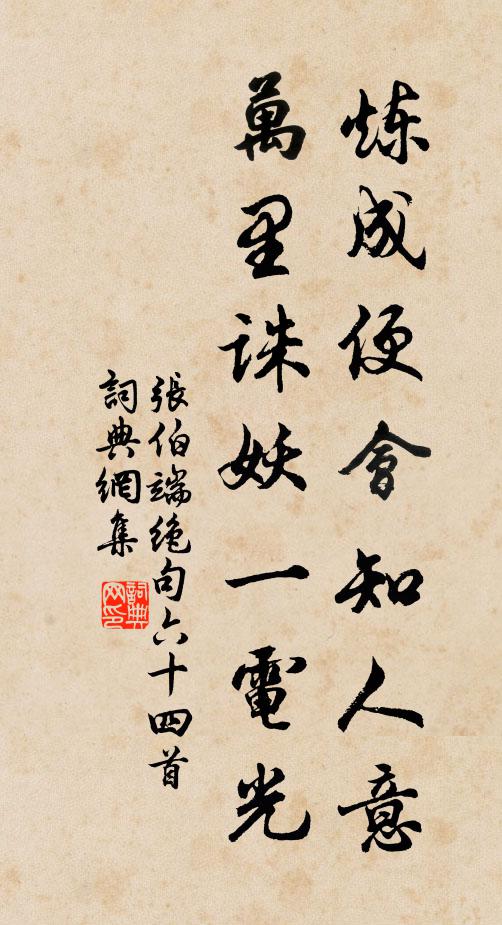 炼成便會知人意
萬里誅妖一電光
張伯端絶句六十四首
詞典網集
詞典网印